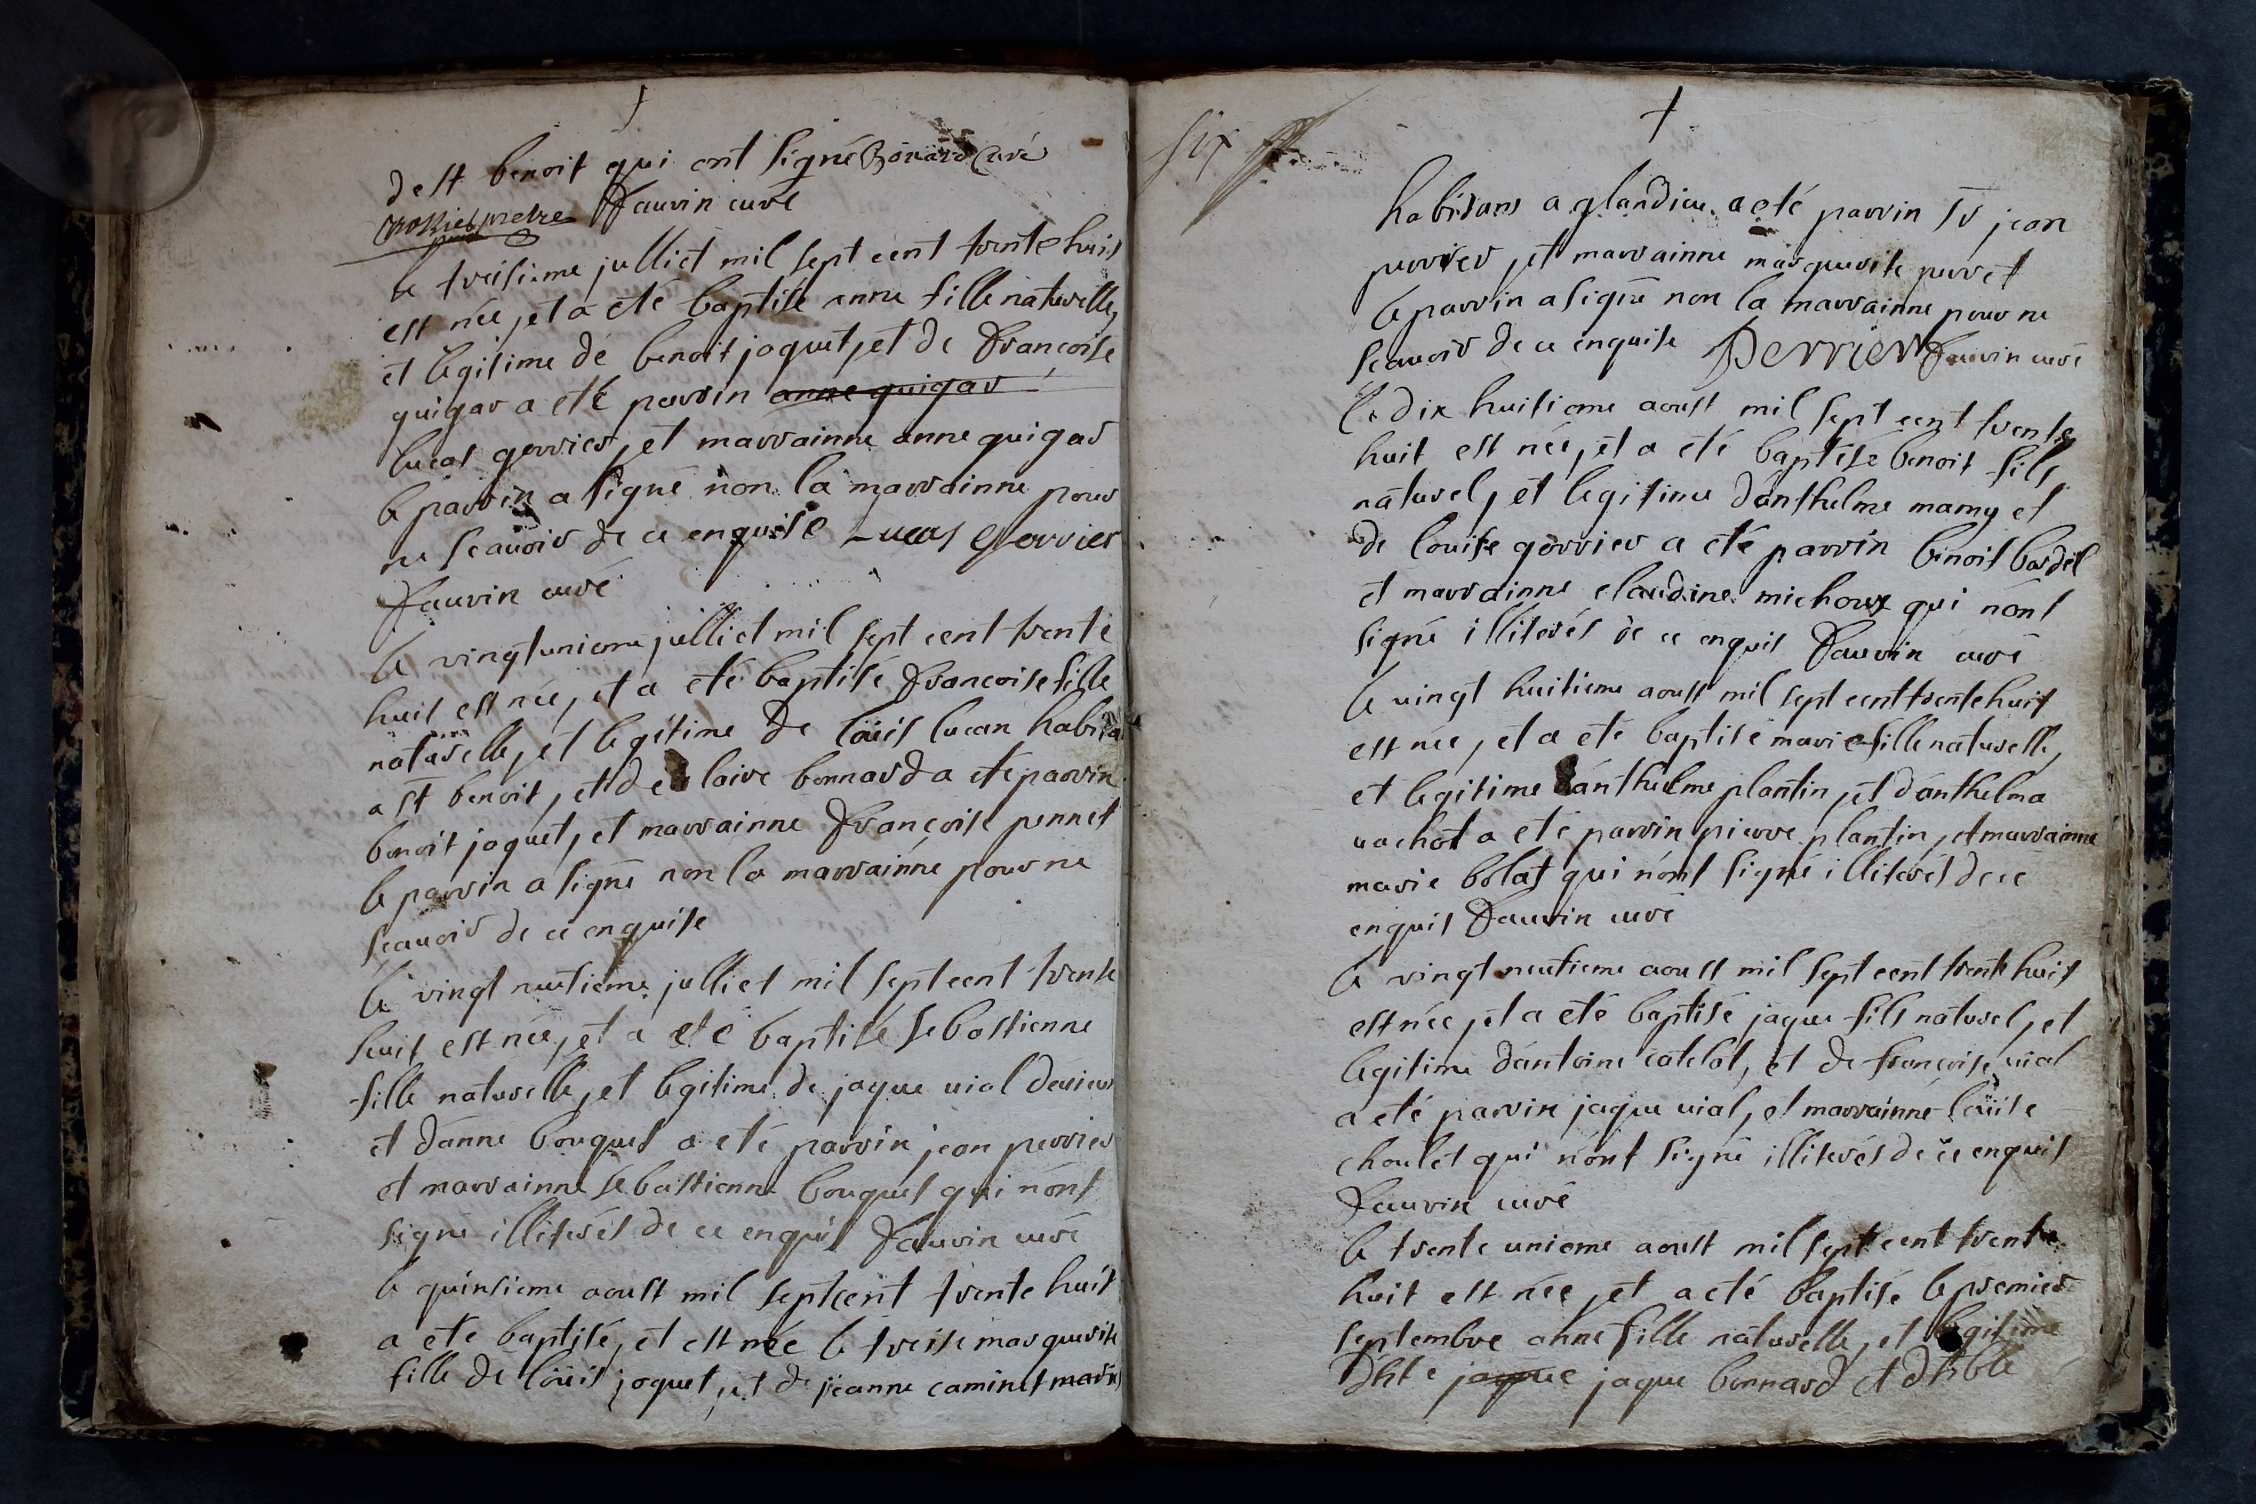 †
de st benoit qui ont signé Bonard Curé
pretre faurin curé
le treisieme julliet mil sept cent trente huit
est née, et a eté baptise anne fille naturelle,
et legitime de benoit joquet, et de françoise
guigar a eté parrin anne guigar
lucas gerrier, et marrainne anne guigar
le parrin a signé non la marrainne pour
ne scauoir de ce enquise Lucas gerrier
faurin curé
le vingt unieme julliet mil sept cent trente
huit est née, et a eté baptisé françoise fille
naturelle, et legitime de loüis lucan habita
a st benoit, et de claire bonnard a eté parrin
benoit joquet, et marrainne françoise pennet
le parrin a signé non la marrainne pour ne
scauoir de ce enquise
le vingt neutieme julliet mil sept cent trente
huit est née, et a eté baptisé sebastienne
fille naturelle, et legitime de jaque uial
et d'anne bouquet a eté parrin jean perrier
et marrainne sebastienne bouquet qui nónt
signé illiterés de ce enquis faurin curé
le quinsieme aoust mil sept cent trente huit
a eté baptisé, et est née le treise marguerite
fille de loüis joquet, et de jeanne caminet mariés
six
†
habitans a glandieu a eté parrin sr jean
perrier, et marrainne marguerite perret
le parrin a signé non la marrainne pour ne
scauoir de ce enquise Perrier faurin curé
le dix huitieme aoust mil sept cent trente
huit est née, et a eté baptisé benoit fils
naturel, et legitime dánthelme mamy et
de louise gerrier a eté parrin benoit bardel
et marrainne claudine michoux qui nónt
signé illiterés de ce enquis faurin curé
le vingt huitieme aoust mil sept cent trente huit
est née, et a eté baptisé marie fille naturelle,
et legitime dánthelme plantin, et dánthelma
uachot a eté parrin pierre plantin, et marrainne
marie bolat qui nónt signé illiterés de ce
enquis faurin curé
le vingt neutieme aoust mil sept cent trente huit
est née, et a eté baptisé jaque fils naturel, et
legitime dántoine catelot, et de françoise uial
a eté parrin jaque uial, et marrainne loüise
choulet qui nónt signé illiterés de ce enquis
faurin curé
le trente unieme aoust mil sept cent trente
huit est née, et a eté baptisé le premier
septembre anne fille naturelle, et legitime
jaque jaque bonnard et